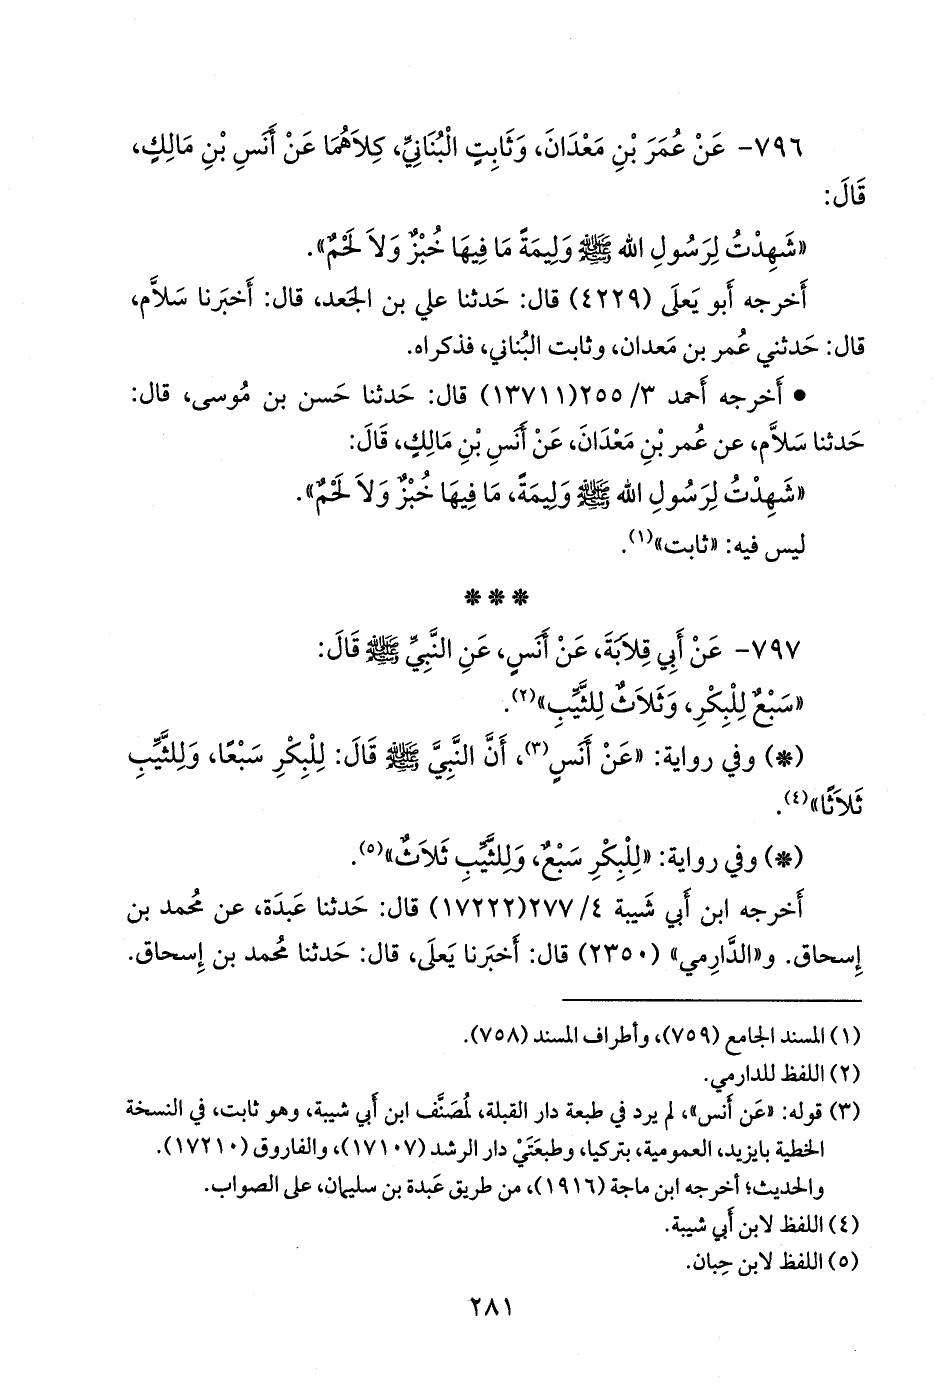 ٧٩٦- عَنْ عُمَرَ بْنِ مَعْدَانَ، وَثَابِتٍ الْبُنَانِيِّ، كِلاَهُمَا عَنْ أَنَسِ بْنِ مَالِكٍ،
قَالَ:
«شَهِدْتُ لِرَسُولِ الله ﷺ وَلِيمَةً مَا فِيهَا خُبْزٌ وَلاَ لَحْمٌ».
أَخرجه أَبو يَعلَى (٤٢٢٩) قال: حَدثنا علي بن الجَعد، قال: أَخبَرنا سَلاَّم،
قال: حَدثني عُمر بن مَعدان، وثابت البُناني، فذكراه.
• أَخرجه أَحمد ٣/ ٢٥٥(١٣٧١١) قال: حَدثنا حَسن بن مُوسى، قال:
حَدثنا سَلاَّم، عن عُمر بْنِ مَعْدَانَ، عَنْ أَنَسِ بْنِ مَالِكٍ، قَالَ:
«شَهِدْتُ لِرَسُولِ الله ﷺ وَلِيمَةً، مَا فِيهَا خُبْزٌ وَلاَ لَحْمٌ».
ليس فيه: «ثابت»(١).
* * *
٧٩٧- عَنْ أَبِي قِلاَبَةَ، عَنْ أَنَسٍ، عَنِ النَّبِيِّ ﷺ قَالَ:
«سَبْعٌ لِلْبِكْرِ، وَثَلاَثٌ لِلثَّيِّبِ»(٢).
(*) وفي رواية: «عَنْ أَنَسٍ(٣)، أَنَّ النَّبِيَّ ﷺ قَالَ: لِلْبِكْرِ سَبْعًا، وَلِلثَّيِّبِ
ثَلاَثًا»(٤).
(*) وفي رواية: «لِلْبِكْرِ سَبْعٌ، وَلِلثَّيِّبِ ثَلاَثٌ»(٥).
أَخرجه ابن أَبي شَيبة ٤/ ٢٧٧(١٧٢٢٢) قال: حَدثنا عَبدَة، عن مُحمد بن
إِسحاق. و«الدَّارِمي» (٢٣٥٠) قال: أَخبَرنا يَعلَى، قال: حَدثنا مُحمد بن إِسحاق.
(١) المسند الجامع (٧٥٩)، وأطراف المسند (٧٥٨).
(٢) اللفظ للدارمي.
(٣) قوله: «عَن أَنس»، لم يرد في طبعة دار القبلة، لمُصَنَّف ابن أَبي شيبة، وهو ثابت، في النسخة
الخطية بايزيد، العمومية، بتركيا، وطبعَتَيْ دار الرشد (١٧١٠٧)، والفاروق (١٧٢١٠).
والحديث؛ أخرجه ابن ماجة (١٩١٦)، من طريق عَبدة بن سليمان، على الصواب.
(٤) اللفظ لابن أَبي شيبة.
(٥) اللفظ لابن حِبان.
٢٨١